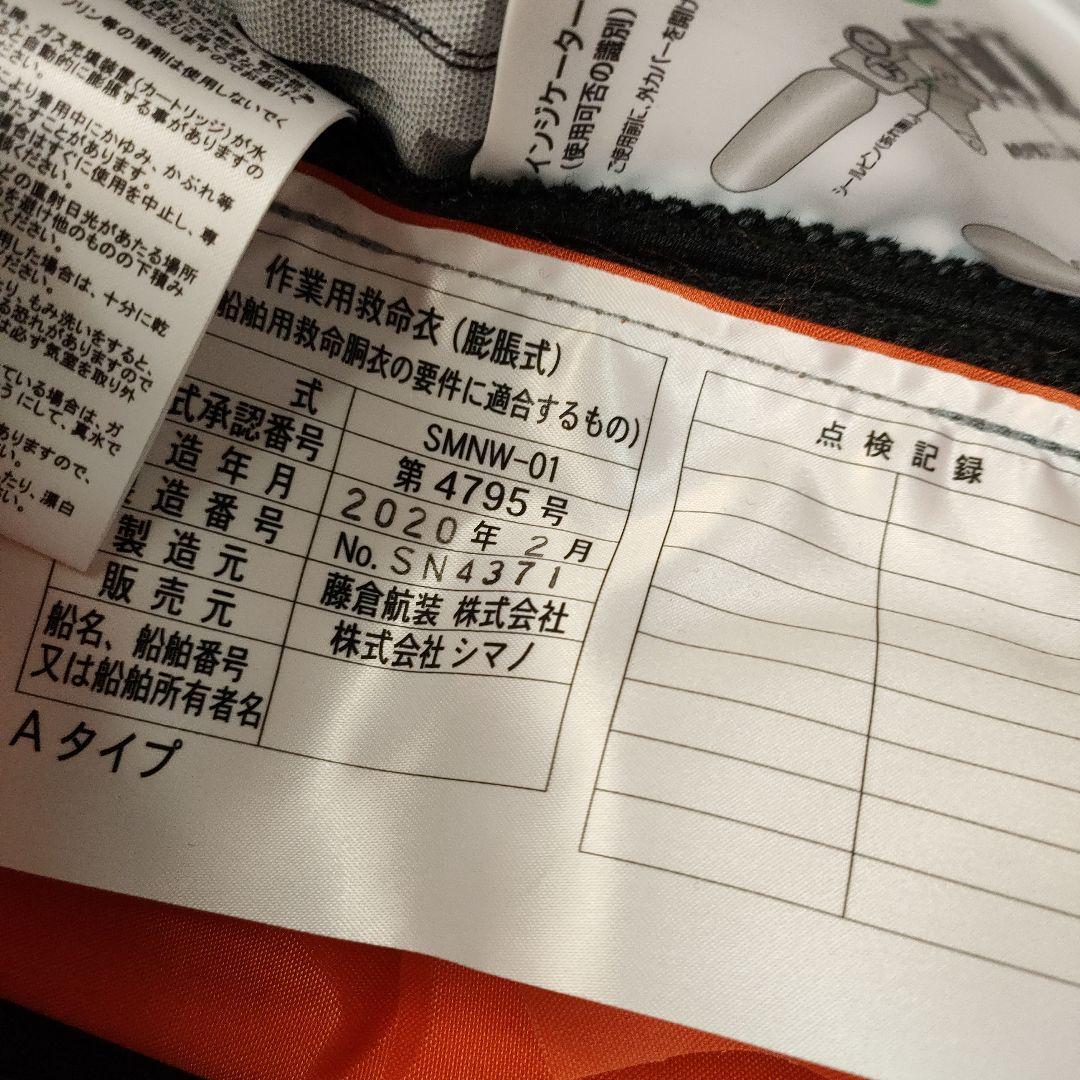 ノリン等の溶剤は使用しないでく
ガス充填装置(カートリッジ)が水
と自動的に膨脹する事がありますの
さい。
により着用中にかゆみ、かぶれ等
たすことがあります。
場合はすぐに使用を中止し、専
ください。
どの直射日光があたる場所
を避け他のものの下積み
ください。
用した場合は、十分に乾
ださい。
たり、もみ洗いをすると、
る恐れがありますので
は必ず気室を取り外
ている場合は、ガ
うにして、真水で
ありますので、
い。
たり、漂白
さい。
インジケーター
(使用可否の識別)
ご使用前に、外カバーを開け
シールピン
作業用救命衣(膨脹式)
船舶用救命胴衣の要件に適合するもの)
式 SMNW-01
式承認番号 第4795号
造年月 2020年2月
造番号 No.SN4371
製造元 藤倉航装 株式会社
販売元 株式会社シマノ
船名、船舶番号
又は船舶所有者名
Aタイプ
点検記録